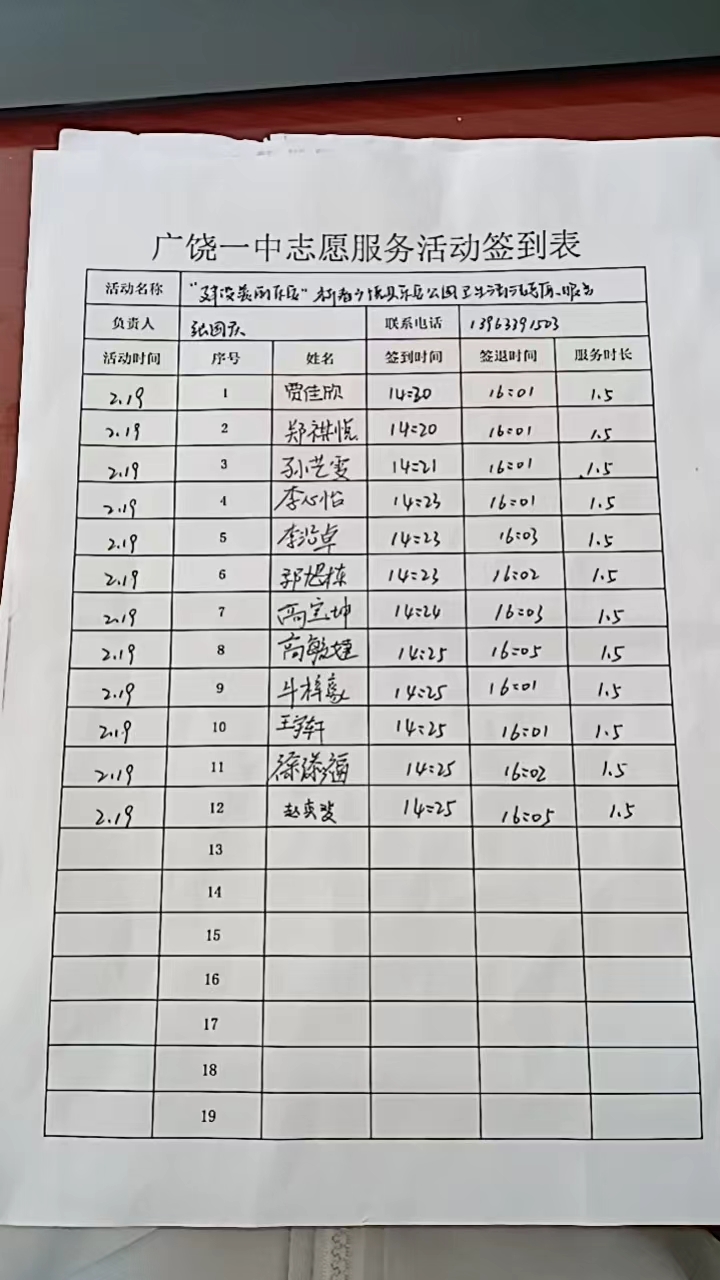 广饶一中志愿服务活动签到表
活动名称 "建设美丽乐安" 公园卫生清洁志愿服务
负责人 张国庆 联系电话 13963391503
活动时间 序号 姓名 签到时间 签退时间 服务时长
2.19 1 贾佳欣 14:20 16:01 1.5
2.19 2 郑祺悦 14:20 16:01 1.5
2.19 3 孙艺雯 14:21 16:01 1.5
2.19 4 李心怡 14:23 16:01 1.5
2.19 5 李浩卓 14:23 16:03 1.5
2.19 6 郭旭栋 14:23 16:02 1.5
2.19 7 高宝坤 14:24 16:03 1.5
2.19 8 高敏捷 14:25 16:05 1.5
2.19 9 14:25 16:01 1.5
2.19 10 王宇轩 14:25 16:01 1.5
2.19 11 徐添福 14:25 16:02 1.5
2.19 12 赵奕 14:25 16:05 1.5
13
14
15
16
17
18
19